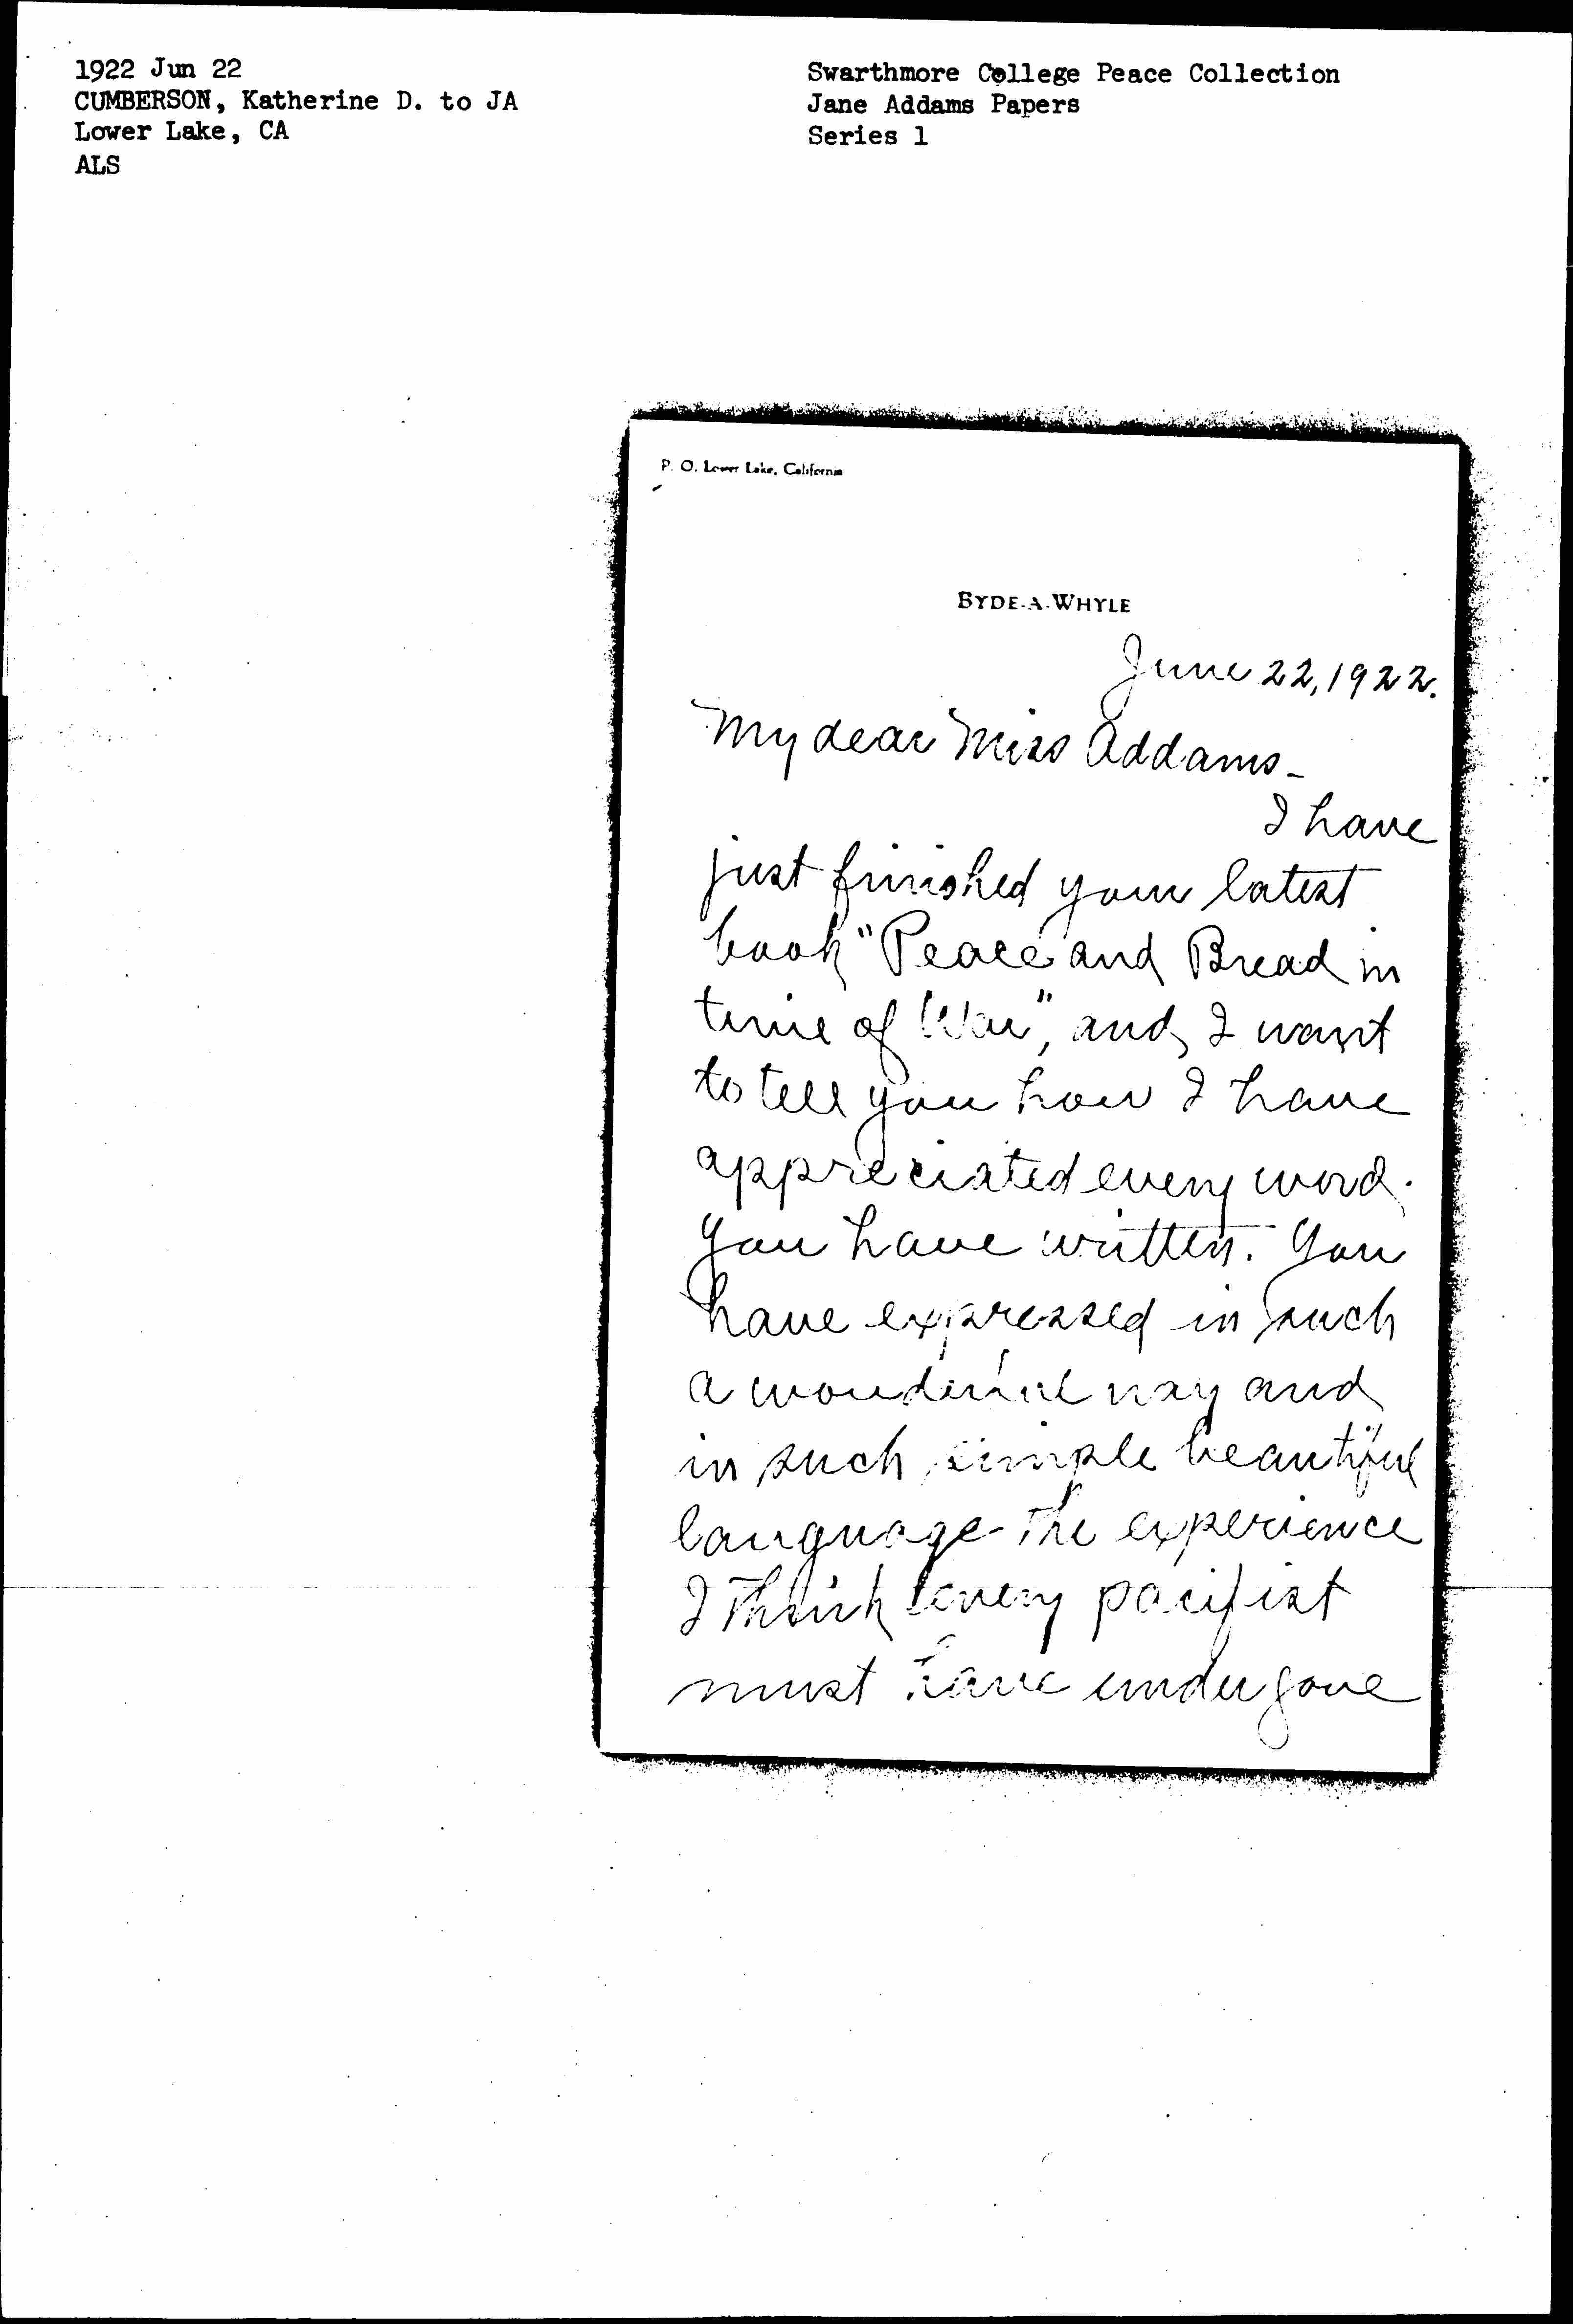 1922 Jun 22
CUMBERSON, Katherine D. to JA
Lower Lake, CA
ALS
Swarthmore College Peace Collection
Jane Addams Papers
Series 1
P. O. Lower Lake, California
BYDE-A-WHYLE
June 22, 1922.
My dear Miss Addams -
I have
just finished your latest
book "Peace and Bread in
time of War", and I want
to tell you how I have
appreciated every word
you have written. You
have expressed in such
a wonderful way and
in such simple beautiful
language - the experience
I think every pacifist
must have undergone